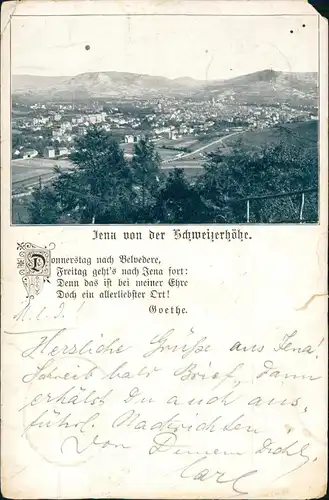 Jena von der Schweizerhöhe.
Donnerstag nach Belvedere,
Freitag geht's nach Jena fort:
Denn das ist bei meiner Ehre
Doch ein allerliebster Ort!
Goethe.
M. l. J.!
Herzliche Grüße aus Jena!
Schreib bald Brief, dann
erhälst Du auch aus-
führl. Nachrichten
Von Deinem Dichl.
Carl